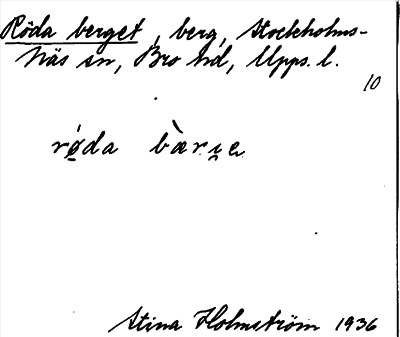 Röda berget, berg, Stockholms-
Näs sn, Bro hd, Upps. l.
10
Stina Holmström 1936